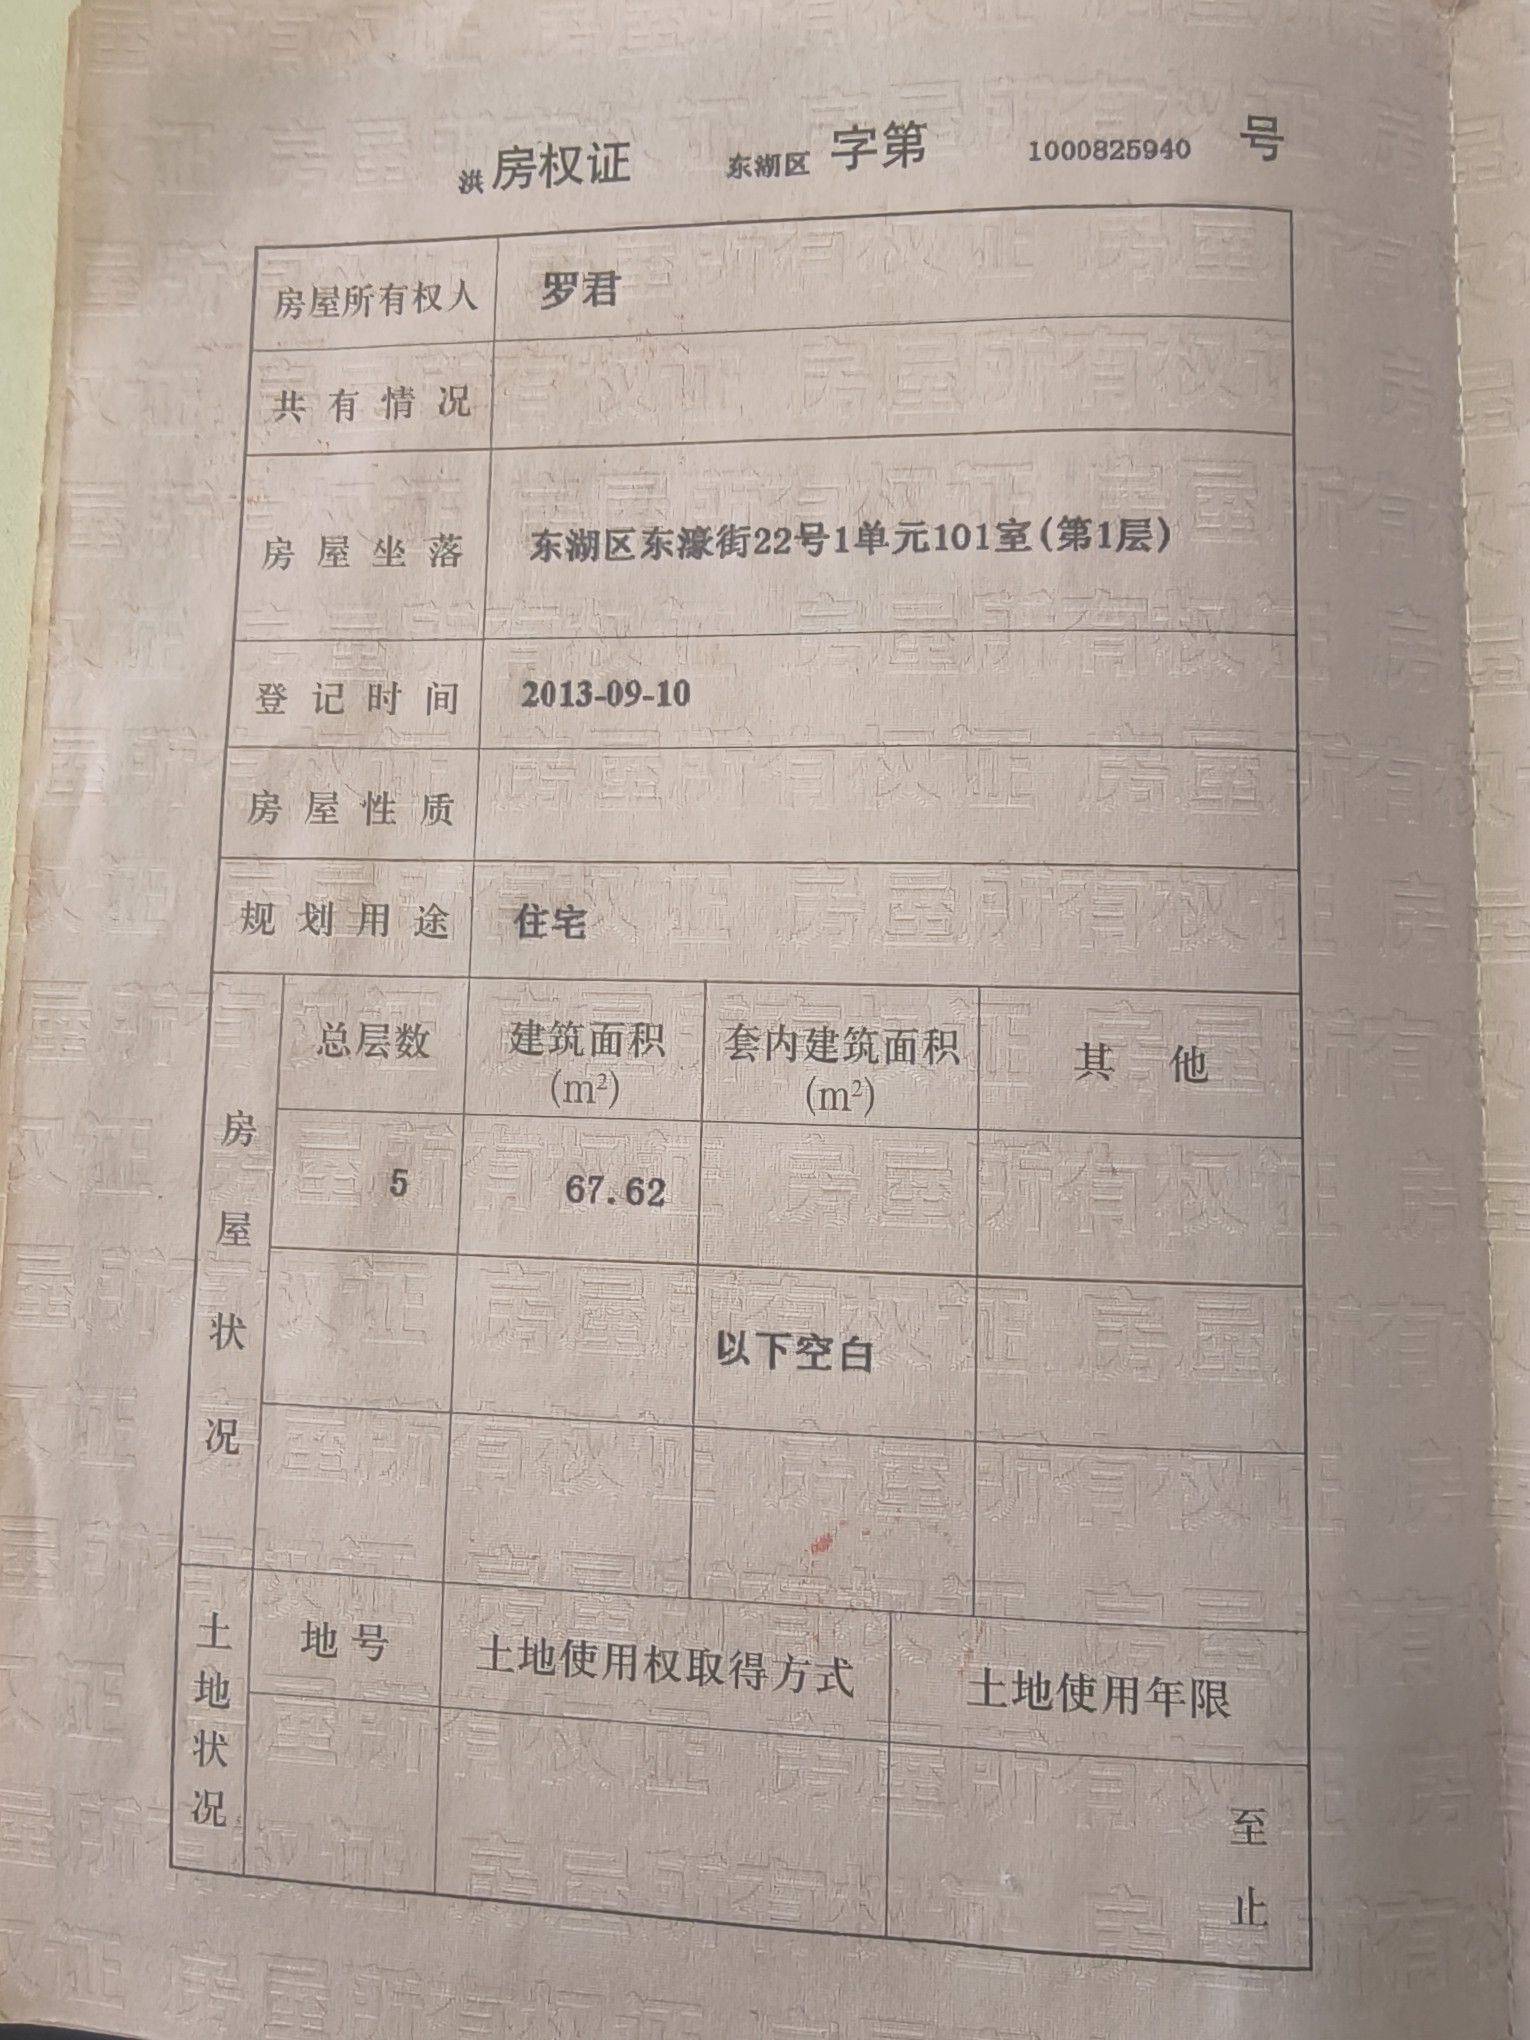 洪房权证 东湖区 字第 1000825940 号
房屋所有权人 罗君
共有情况
房屋坐落 东湖区东濠街22号1单元101室(第1层)
登记时间 2013-09-10
房屋性质
规划用途 住宅
房屋状况
总层数 建筑面积(m²) 套内建筑面积(m²) 其他
5 67.62
以下空白
土地状况
地号 土地使用权取得方式 土地使用年限
至
止